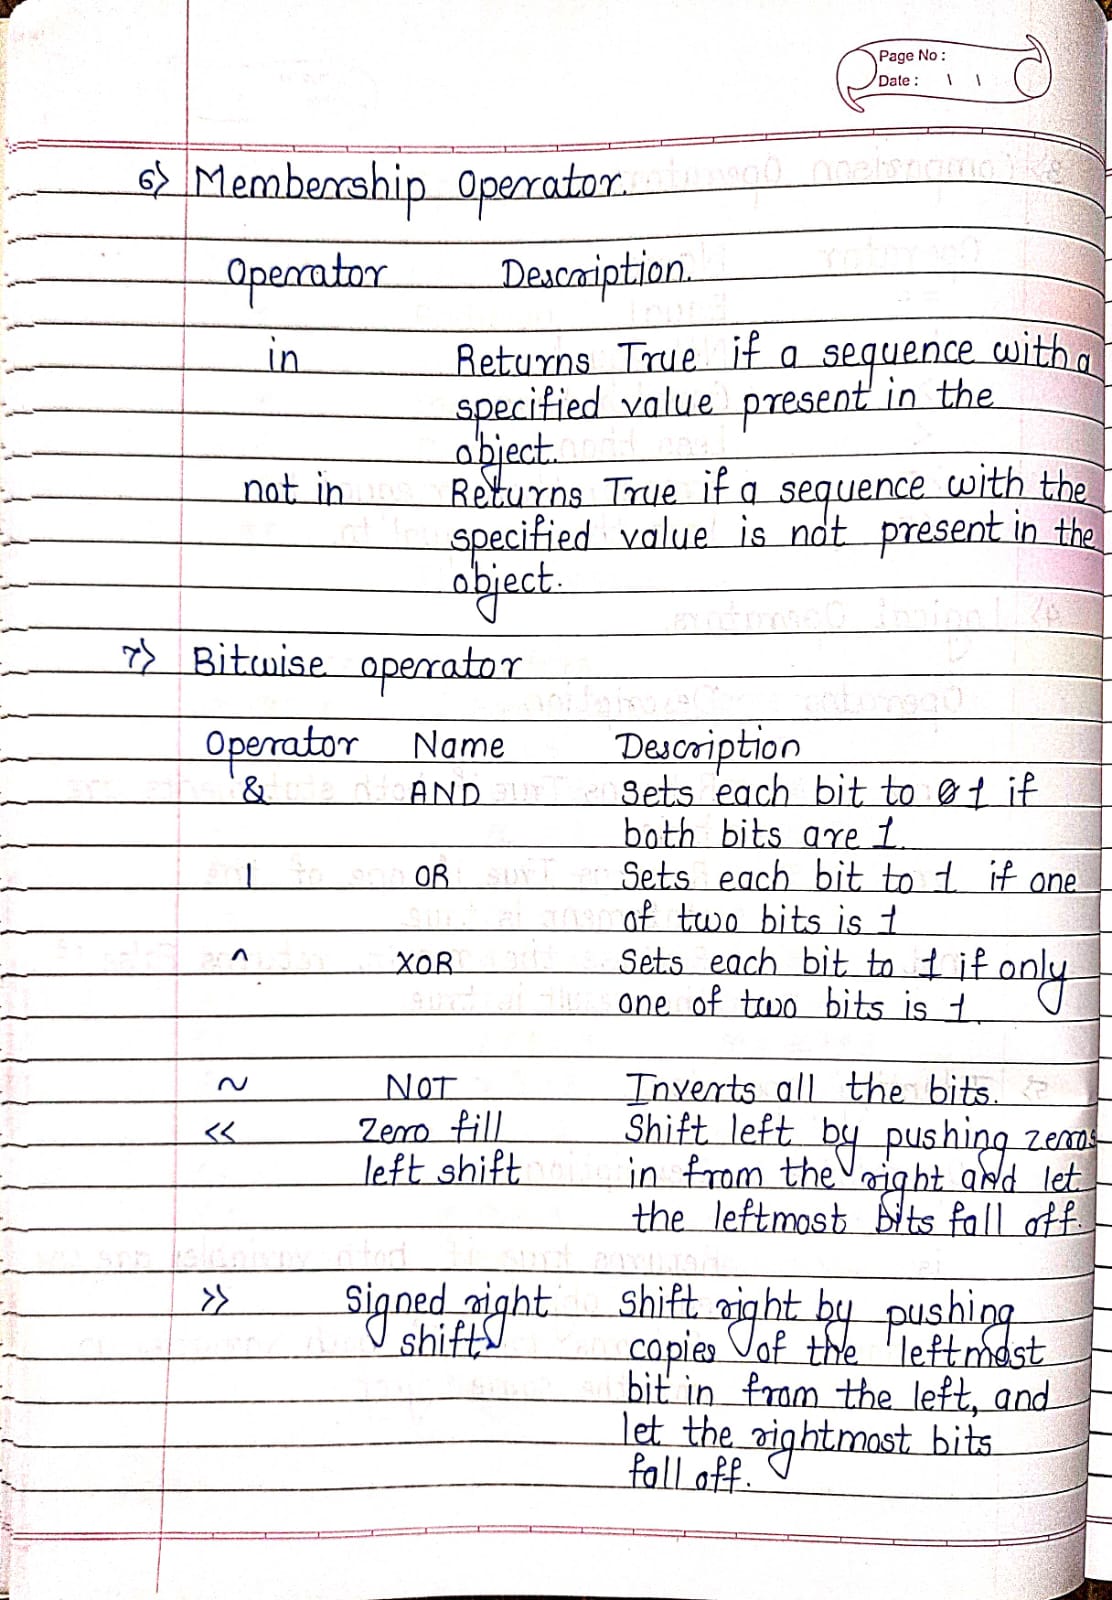 Page No :
Date : \ \
6) Membership operator.
Operator Description.
in Returns True if a sequence with a
specified value present in the
object.
not in Returns True if a sequence with the
specified value is not present in the
object.
7) Bitwise operator
Operator Name Description
& AND Sets each bit to 1 if
both bits are 1.
| OR Sets each bit to 1 if one
of two bits is 1
^ XOR Sets each bit to 1 if only
one of two bits is 1.
~ NOT Inverts all the bits.
<< Zero fill Shift left by pushing zeros
left shift in from the right and let
the leftmost bits fall off.
>> Signed right Shift right by pushing
shift copies of the leftmost
bit in from the left, and
let the rightmost bits
fall off.